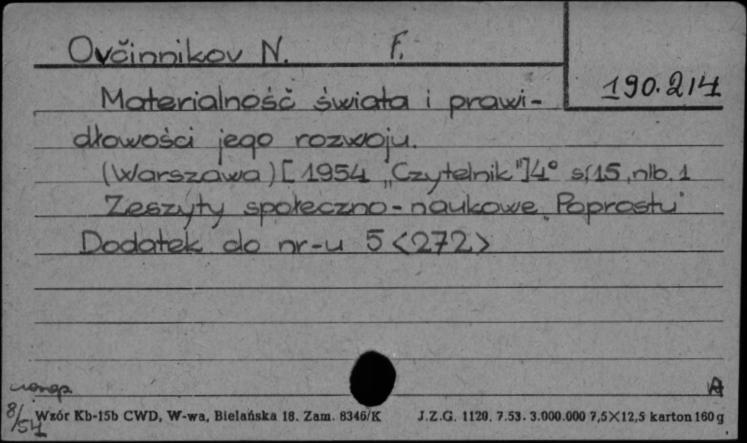 Ovčinnikov N. F.
190.214
Materialność świata i prawi-
dłowości jego rozwoju.
(Warszawa) [1954 „Czytelnik"] 4° s. 15, nlb. 1
Zeszyty społeczno-naukowe „Poprostu"
Dodatek do nr-u 5 <272>
A
8/54
Wzór Kb-15b CWD, W-wa, Bielańska 18. Zam. 8346/K J.Z.G. 1120. 7.53. 3.000.000 7,5×12,5 karton 160 g